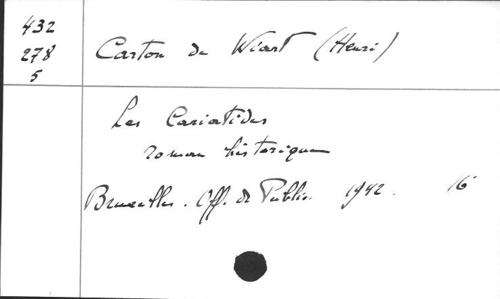 432
278
5
Carton de Wiart (Henri)
Les Cariatides
roman historique
Bruxelles. Off. de Public. 1942. 16°